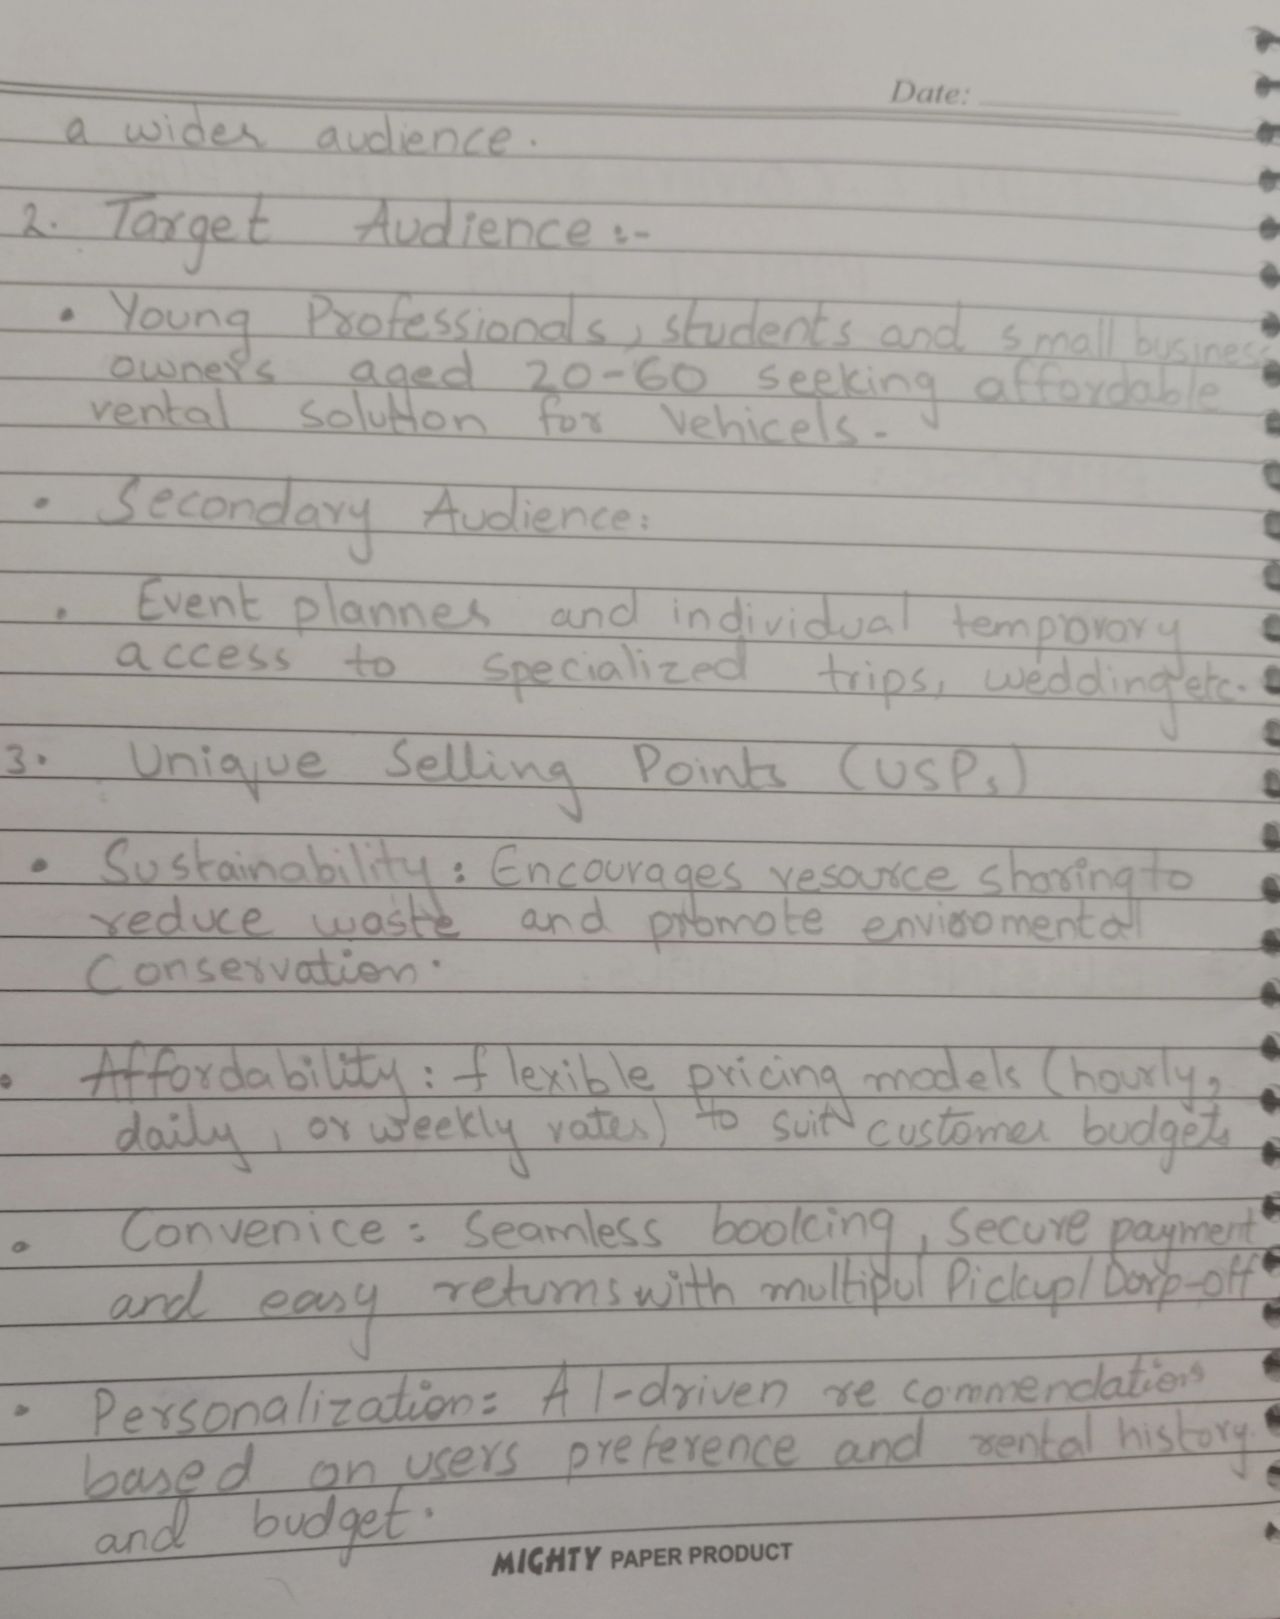 Date:
a wider audience.
2. Target Audience :-
• Young Professionals, students and small business
owners aged 20-60 seeking affordable
rental solution for Vehicels.
• Secondary Audience:
• Event plannes and individual temporory
access to specialized trips, wedding etc.
3. Unique Selling Points (USPs)
• Sustainability : Encourages resource sharing to
reduce waste and promote enviromental
Conservation.
• Affordability : flexible pricing models (hourly,
daily, or weekly rates) to suit customer budgets
• Convenice : Seamless booking, Secure payment
and easy returns with multipul Pickup/Dorp-off
• Personalization: AI-driven re commendations
based on users preference and rental history
and budget.
MIGHTY PAPER PRODUCT